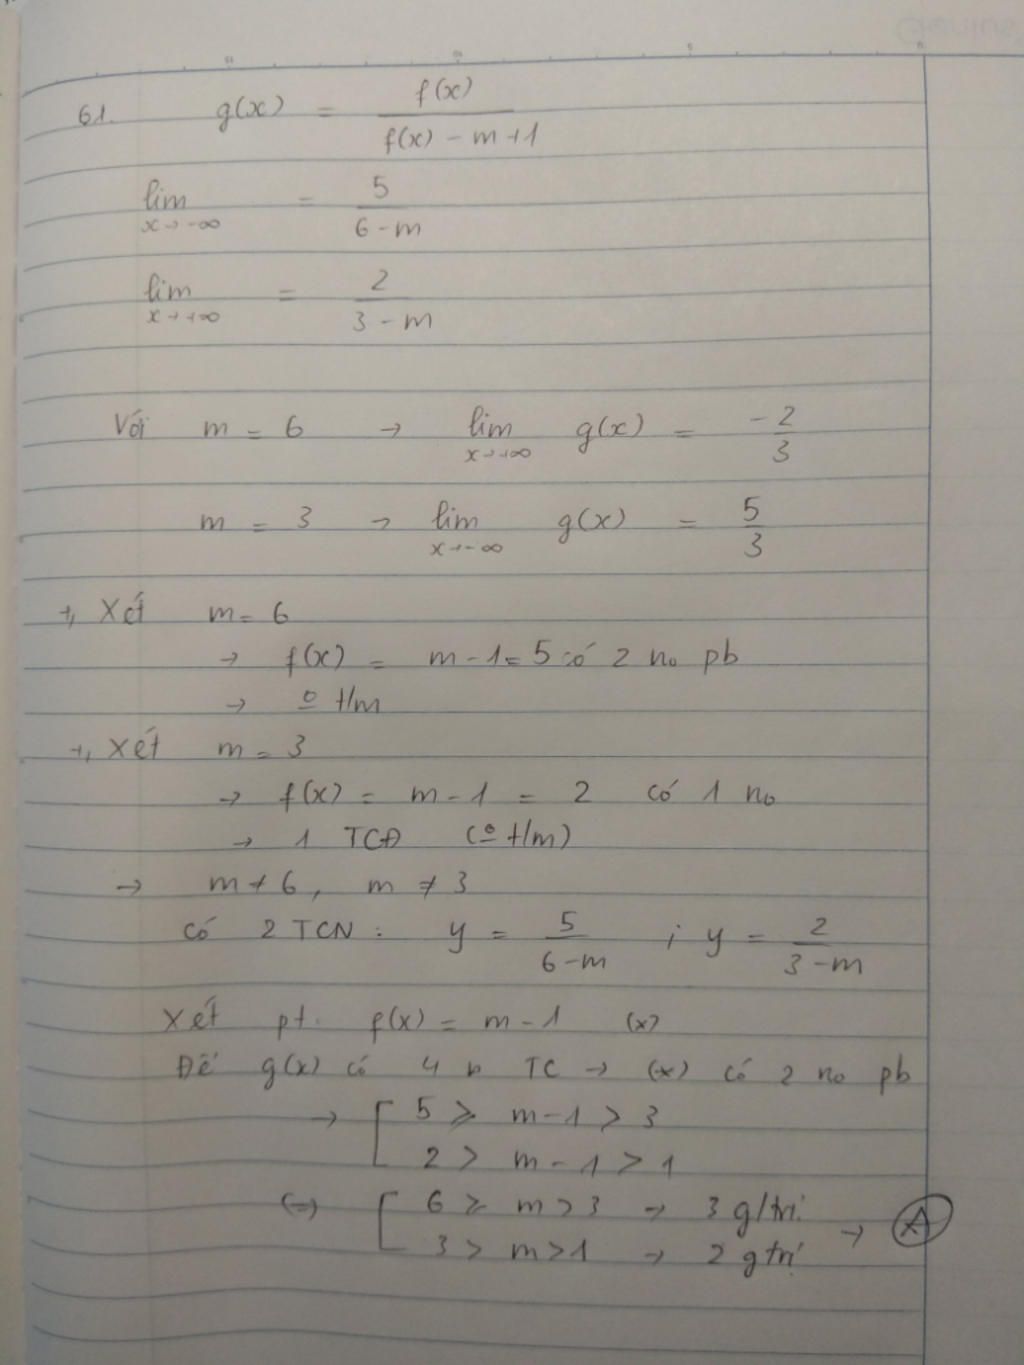 61. g(x) = f(x) / (f(x) - m + 1)
lim x→-∞ = 5 / (6 - m)
lim x→+∞ = 2 / (3 - m)
Với m = 6 → lim x→+∞ g(x) = -2/3
m = 3 → lim x→-∞ g(x) = 5/3
+, Xét m = 6
→ f(x) = m - 1 = 5 có 2 no pb
→ o t/m
+, Xét m = 3
→ f(x) = m - 1 = 2 có 1 no
→ 1 TCĐ (o t/m)
→ m ≠ 6, m ≠ 3
Có 2 TCN : y = 5 / (6 - m) ; y = 2 / (3 - m)
Xét pt. f(x) = m - 1 (x)
Để g(x) có 4 TC → (x) có 2 no pb
→ [ 5 ⩾ m - 1 > 3
2 > m - 1 > 1
(=) [ 6 ⩾ m > 3 → 3 g/trị
3 > m > 1 → 2 gtrị → A